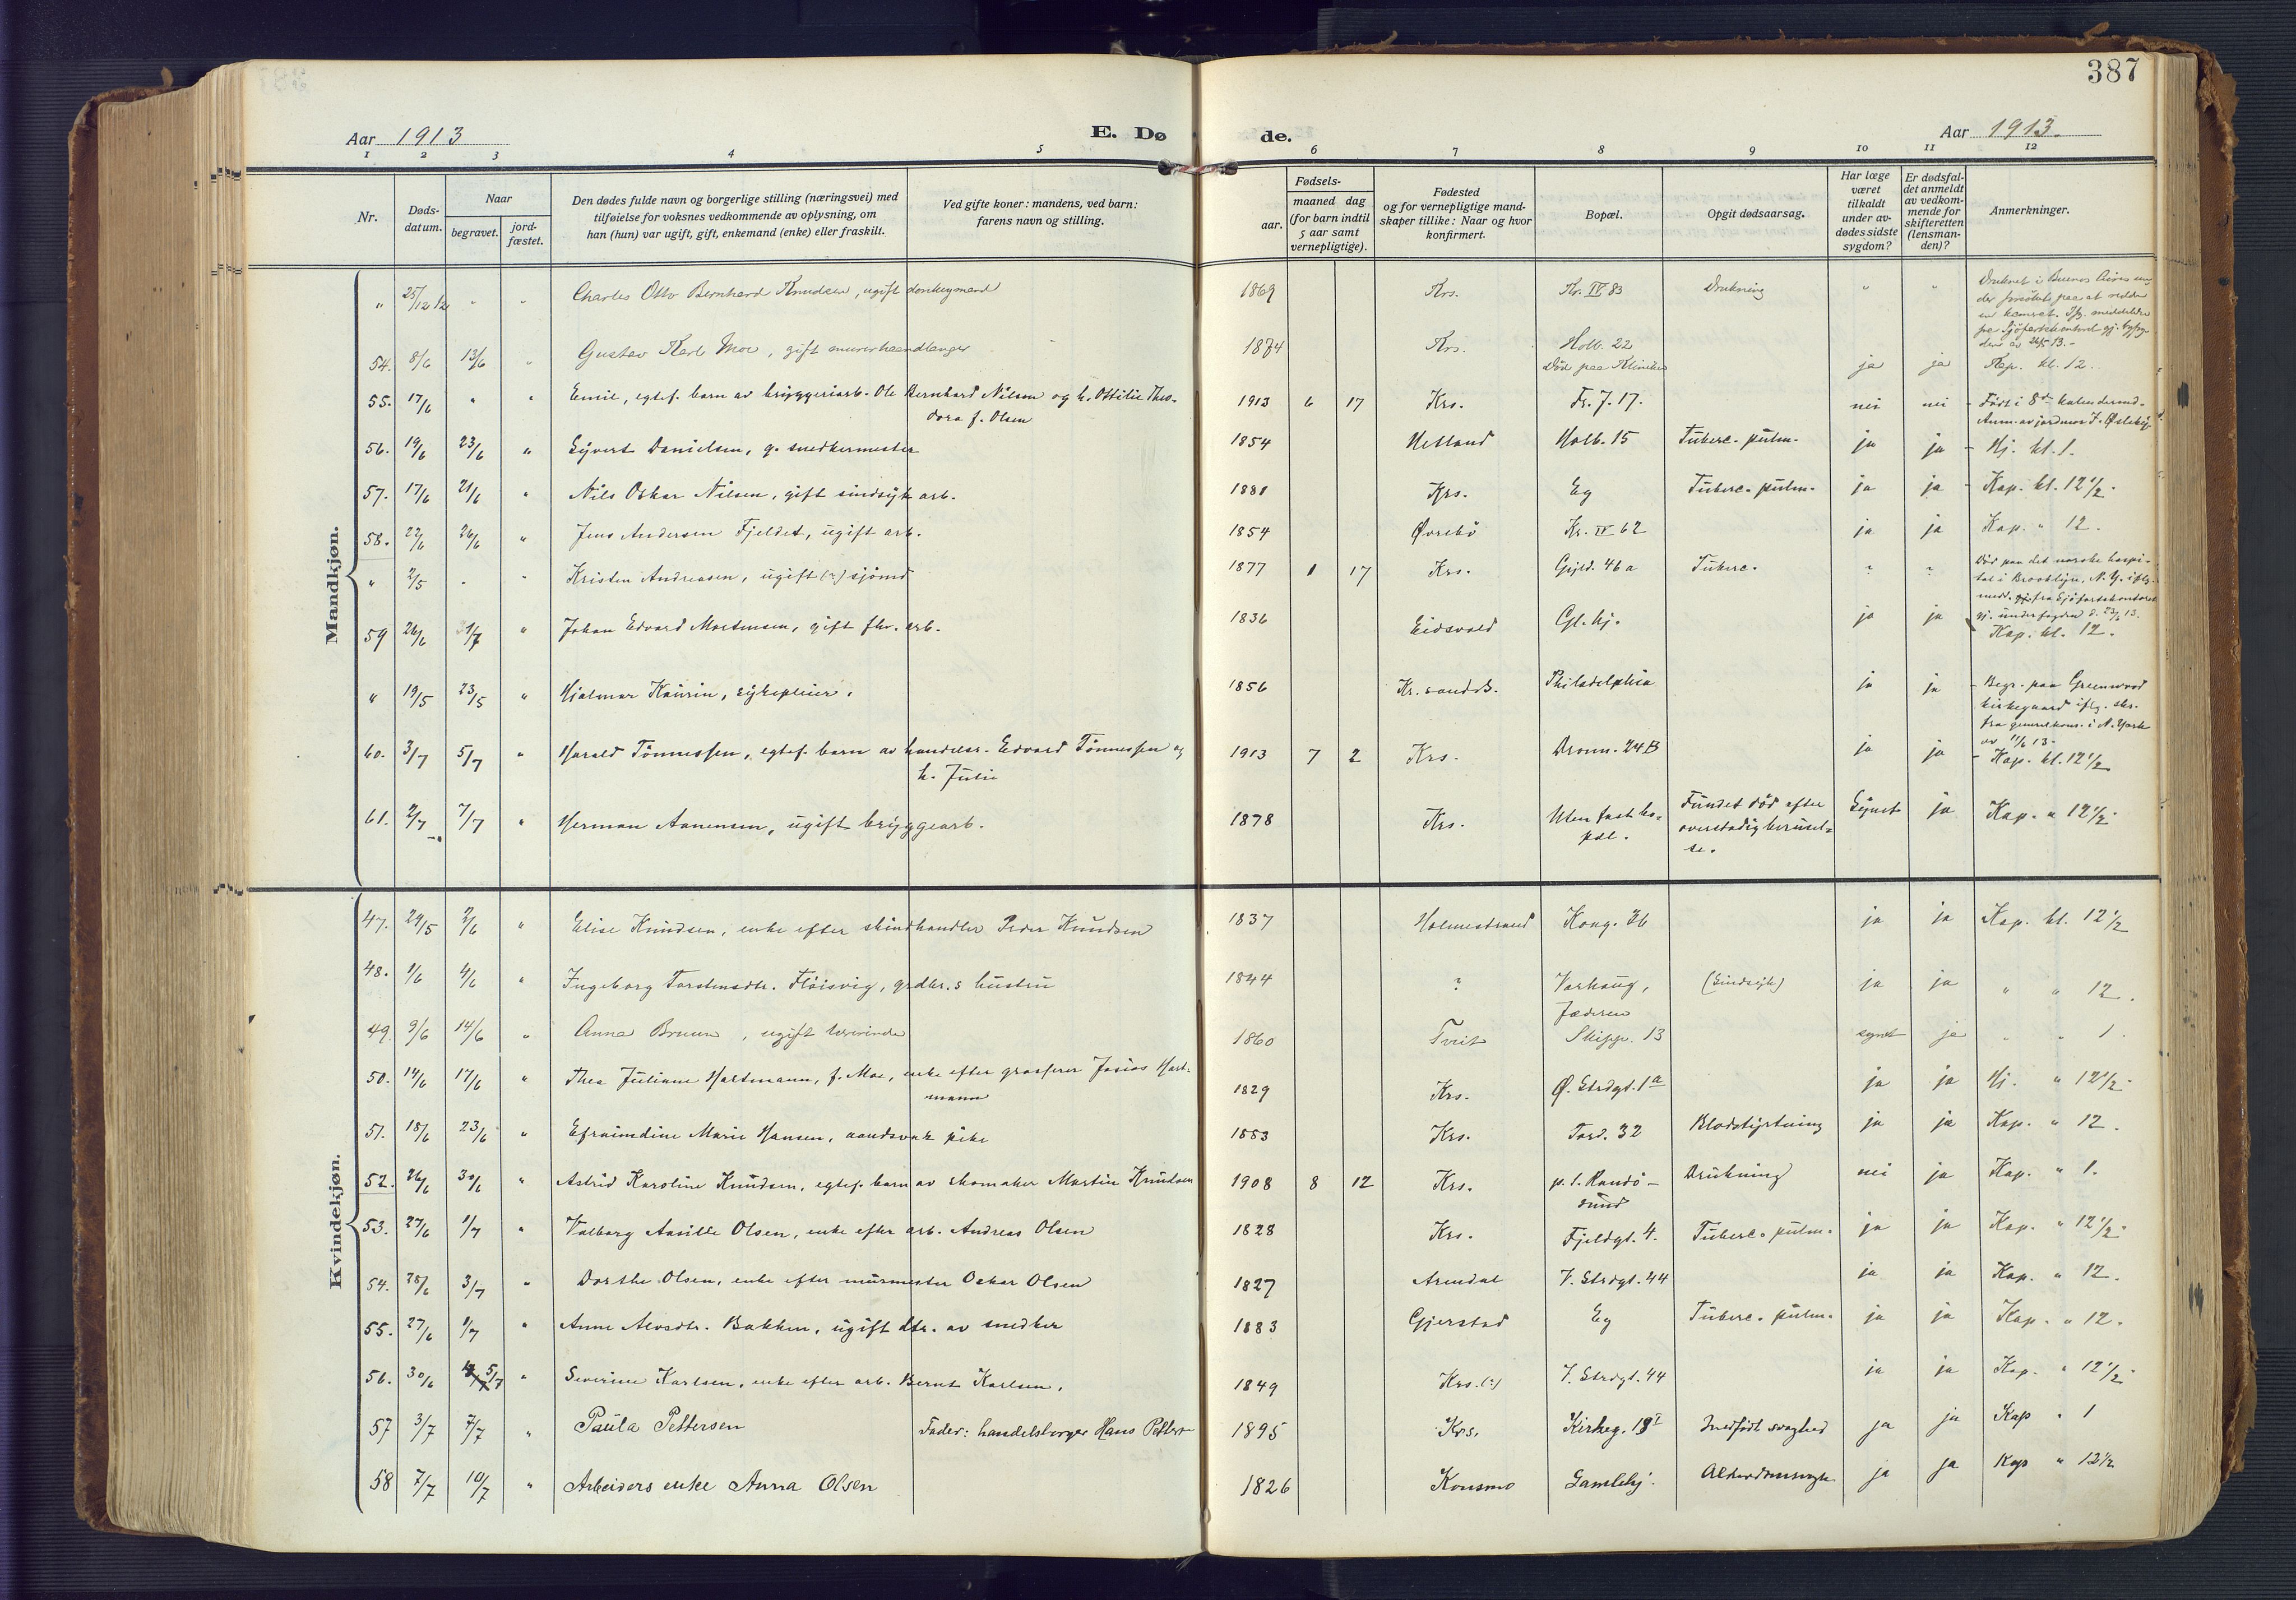 387
Aar 1913 E. Døde. Aar 1913.
1 2 3 4 5 6 7 8 9 10 11 12
Nr. Døds-datum. Naar begravet. jord-fæstet. Den dødes fulde navn og borgerlige stilling (næringsvei) med tilføielse for voksnes vedkommende av oplysning, om han (hun) var ugift, gift, enkemand (enke) eller fraskilt. Ved gifte koner: mandens, ved barn: farens navn og stilling. Fødsels- aar. maaned dag (for barn indtil 5 aar samt vernepligtige). Fødested og for vernepligtige mandskaper tillike: Naar og hvor konfirmert. Bopæl. Opgit dødsaarsag. Har læge været tilkaldt under avdødes sidste sygdom? Er dødsfaldet anmeldt av vedkommende for skifteretten (lensmanden)? Anmerkninger.
Mandkjøn.
" 25/12 12 " " Charles Otto Bernhard Knudsen, ugift donkeymand 1869 Krs. Kr. IV 83 Drukning " " Druknet i Buenos Aires under forsøket paa at redde en kamerat. Ifg. meddelelse fra Sjøfartskontoret gj. byfogden av 26/5 13.-
54. 8/6 13/6 " Gustav Karl Moe, gift murerhaandlanger 1874 Krs. Holb. 22 Død paa Kliniken ja ja Kap. kl. 12.
55. 17/6 " " Emil, egtef. barn av bryggeriarb. Ole Bernhard Nilsen og h. Ottilie Theodora f. Olsen 1913 6 17 Krs. Fr. J. 17. nei nei - Født i 8de kalendermd. Anm. av jordmor J. Øslebø.
56. 19/6 23/6 " Syvert Danielsen, g. snedkermester 1854 Hetland Holb. 15 Tuberc. pulm. ja ja - Hj. kl. 1.
57. 17/6 21/6 " Nils Oskar Nilsen, gift sindsyk arb. 1881 Krs. Eg Tuberc. pulm. ja ja - Kap. kl. 12 1/2.
58. 22/6 26/6 " Jens Andersen Fjeldet, ugift arb. 1854 Øvrebø Kr. IV 62 ja ja Kap. " 12.
" 2/5 " " Kristen Andreasen, ugift (?) sjømd 1877 1 17 Krs. Gyld. 46 a Tuberc. ? ? Død paa det norske hospital i Brooklyn, N.Y. iflg. medd. fra Sjøfartskontoret gj. underfogden d. 23/6 13.
59 26/6 1/7 " Johan Edvard Mortensen, gift fhv. arb. 1836 Eidsvold Gl. hj. ja ja Kap. kl. 12.
" 19/5 23/5 " Hjalmar Kaurin, sykepleier. 1856 Kr.sandS. Philadelphia ja ja - Begr. paa Greenwood kirkegaard iflg. skr. fra generalkons. i N. York av 11/6 13.
60. 3/7 5/7 " Harald Tønnessen, egtef. barn av handelsr. Edvard Tønnessen og h. Julie 1913 7 2 Krs. Dronn. 24 B ja ja - Kap. kl. 12 1/2
61. 2/7 7/7 " Herman Aanensen, ugift bryggearb. 1878 Krs. Uten fast bopæl. Fundet død efter overstadig beruselse. Synet ja Kap. " 12 1/2.
Kvindekjøn.
47. 29/5 2/6 " Elise Knudsen, enke efter skindhandler Peder Knudsen 1837 Holmestrand Kong. 36 ja ja Kap. kl. 12 1/2
48. 1/6 4/6 " Ingeborg Torstensdtr. Fløisvig, grdbr.s hustru 1844 ? Varhaug, Jæderen (Sindsyk) ja ja " " 12.
49. 9/6 14/6 " Anna Bruun, ugift lærerinde 1860 Tveit Skipp. 13 synet ja " " 1.
50. 14/6 17/6 " Thea Juliane Hartmann, f. Moe, enke efter grosserer Josias Hartmann 1829 Krs. Ø. Strdgt. 1 a ja ja Hj. " 12 1/2.
51. 18/6 23/6 " Efraimdine Marie Hansen, aandsvak pike 1883 Krs. Tord. 32 Blodstyrtning ja ja Kap. " 12.
52. 26/6 30/6 " Astrid Karoline Knudsen, egtef. barn av skomaker Martin Knudsen 1908 8 12 Krs. p.t. Randøsund Drukning nei ja Kap. " 1.
53. 27/6 1/7 " Valborg Aasilde Olsen, enke efter arb. Andreas Olsen 1828 Krs. Fjeldgt. 4. Tuberc. pulm. ja ja Kap. " 12 1/2.
54. 28/6 3/7 " Dorthe Olsen, enke efter murmester Oskar Olsen 1827 Arendal V. Strdgt. 44 ja ja Kap. " 12.
55. 27/6 1/7 " Anne Alvsdtr. Bakken, ugift dtr. av snedker 1883 Gjerstad Eg Tuberc. pulm. ja ja Kap. " 12.
56. 30/6 5/7 " Severine Karlsen, enke efter arb. Bernt Karlsen. 1849 Krs. (?) V. Strdgt. 44 ja ja Kap. " 12 1/2
57 3/7 7/7 " Paula Pettersen Fader: handelsborger Hans Pettersen 1895 Krs. Kirkeg. 19 I Medfødt svaghed ja ja Kap " 1
58 7/7 10/7 " Arbeiders enke Anna Olsen 1826 Konsmo Gamlehj. Alderdomssvagh. ja ja Kap " 12 1/2